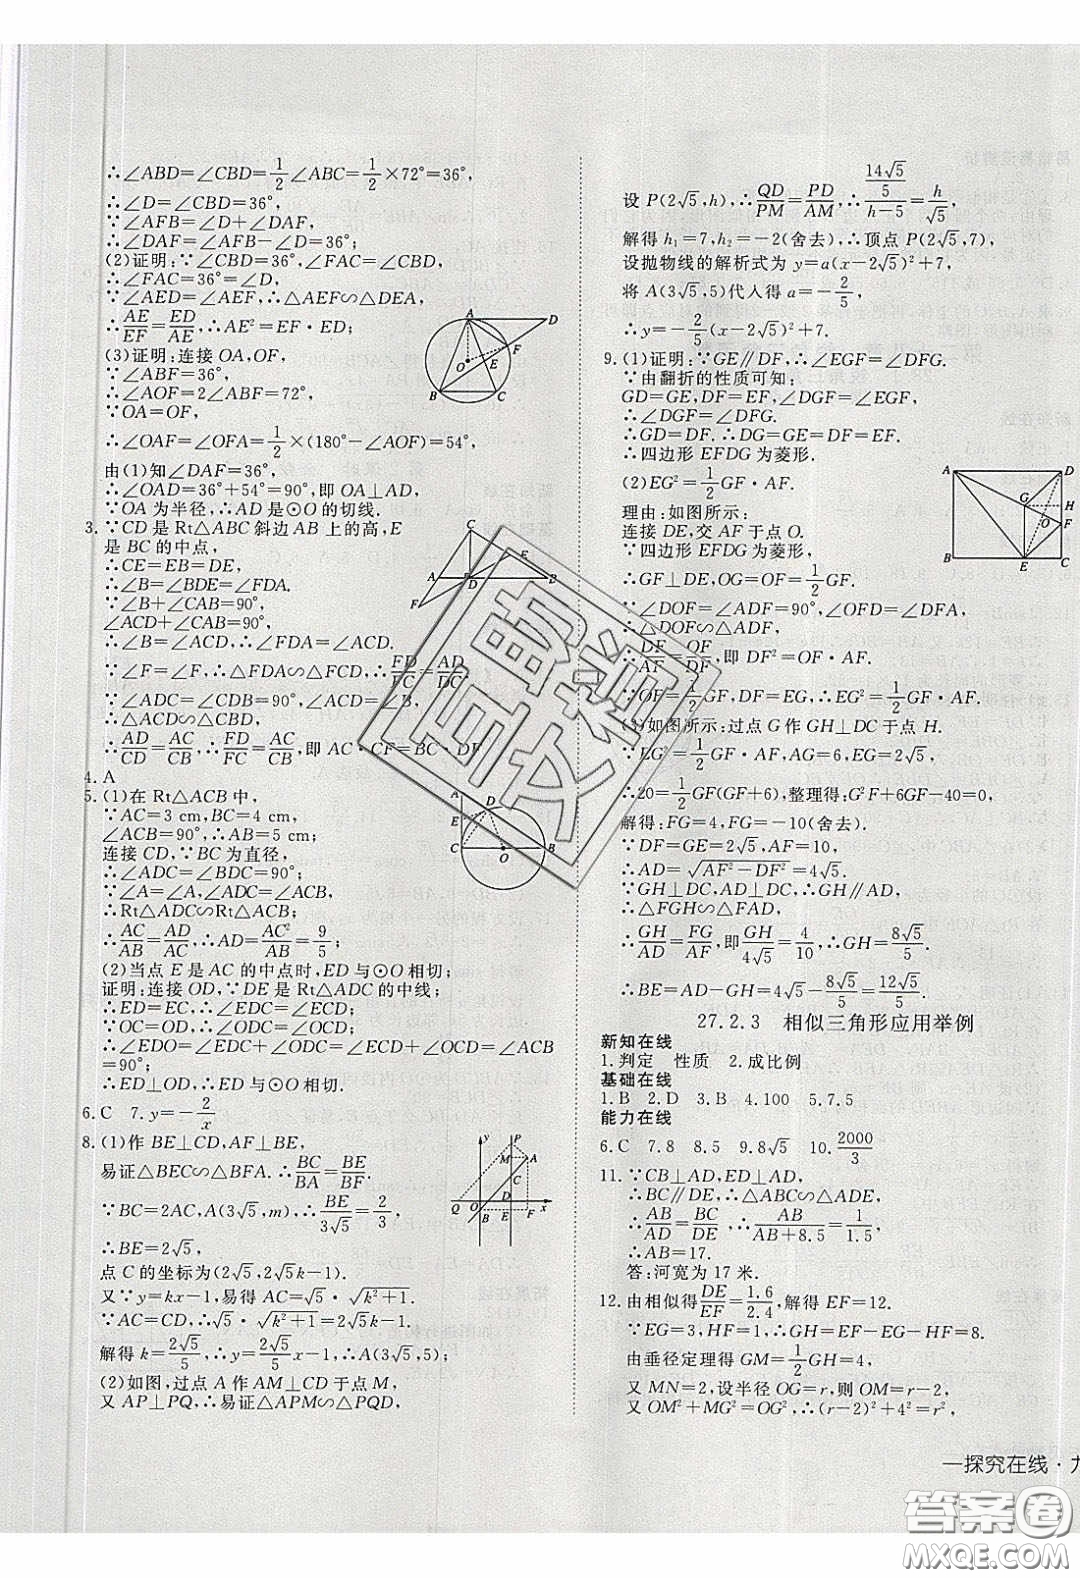 ∴∠ABD=∠CBD=1/2∠ABC=1/2×72°=36°,
∴∠D=∠CBD=36°,
∵∠AFB=∠D+∠DAF,
∴∠DAF=∠AFB-∠D=36°;
(2)证明:∵∠CBD=36°,∠FAC=∠CBD,
∴∠FAC=36°=∠D,
∵∠AED=∠AEF,∴△AEF∽△DEA,
∴AE/EF=ED/AE,∴AE²=EF·ED;
(3)证明:连接OA,OF,
∵∠ABF=36°,
∴∠AOF=2∠ABF=72°,
∵OA=OF,
∴∠OAF=∠OFA=1/2×(180°-∠AOF)=54°,
由(1)知∠DAF=36°,
∴∠OAD=36°+54°=90°,即OA⊥AD,
∵OA为半径,∴AD是⊙O的切线.
3.∵CD是Rt△ABC斜边AB上的高,E
是BC的中点,
∴CE=EB=DE,
∴∠B=∠BDE=∠FDA.
∵∠B+∠CAB=90°,
∠ACD+∠CAB=90°,
∴∠B=∠ACD,∴∠FDA=∠ACD.
∵∠F=∠F,∴△FDA∽△FCD,∴FD/FC=AD/CD.
∵∠ADC=∠CDB=90°,∠B=∠ACD,
∴△ACD∽△CBD,
∴AD/CD=AC/CB,∴FD/FC=AC/CB,即AC·CF=BC·DF.
4.A
5.(1)在Rt△ACB中,
∵AC=3 cm,BC=4 cm,
∠ACB=90°,∴AB=5 cm;
连接CD,∵BC为直径,
∴∠ADC=∠BDC=90°;
∵∠A=∠A,∠ADC=∠ACB,
∴Rt△ADC∽Rt△ACB,
∴AC/AB=AD/AC,∴AD=AC²/AB=9/5;
(2)当点E是AC的中点时,ED与⊙O相切;
证明:连接OD,∵DE是Rt△ADC的中线;
∴ED=EC,∴∠EDC=∠ECD;
∵OC=OD,∴∠ODC=∠OCD;
∴∠EDO=∠EDC+∠ODC=∠ECD+∠OCD=∠ACB
=90°;
∴ED⊥OD,∴ED与⊙O相切.
6.C 7.y=-2/x
8.(1)作BE⊥CD,AF⊥BE,
易证△BEC∽△BFA.∴BC/BA=BE/BF.
∵BC=2AC,A(3√5,m),∴BE/3√5=2/3,
∴BE=2√5,
点C的坐标为(2√5,2√5k-1).
又∵y=kx-1,易得AC=√5·√(k²+1).
∵AC=CD,∴√5·√(k²+1)=2√5k-1,
解得k=2√5/5,∴y=2√5/5x-1,∴A(3√5,5);
(2)如图,过点A作AM⊥CD于点M,
又AP⊥PQ,∴易证△APM∽△PQD,
设P(2√5,h),∴QD/PM=PD/AM,∴(14√5/5)/(h-5)=h/√5,
解得h₁=7,h₂=-2(舍去),∴顶点P(2√5,7),
设抛物线的解析式为y=a(x-2√5)²+7,
将A(3√5,5)代人得a=-2/5,
∴y=-2/5(x-2√5)²+7.
9.(1)证明:∵GE∥DF,∴∠EGF=∠DFG.
∵由翻折的性质可知:
GD=GE,DF=EF,∠DGF=∠EGF,
∴∠DGF=∠DFG.
∴GD=DF.∴DG=GE=DF=EF.
∴四边形EFDG为菱形.
(2)EG²=1/2GF·AF.
理由:如图所示:
连接DE,交AF于点O.
∵四边形EFDG为菱形,
∴GF⊥DE,OG=OF=1/2GF.
∵∠DOF=∠ADF=90°,∠OFD=∠DFA,
∴△DOF∽△ADF.
∴DF/AF=OF/DF,即DF²=OF·AF.
∵OF=1/2GF,DF=EG,∴EG²=1/2GF·AF.
(3)如图所示:过点G作GH⊥DC于点H.
∵EG²=1/2GF·AF,AG=6,EG=2√5,
∴20=1/2GF(GF+6),整理得:G²F+6GF-40=0,
解得:FG=4,FG=-10(舍去).
∵DF=GE=2√5,AF=10,
∴AD=√(AF²-DF²)=4√5.
∵GH⊥DC,AD⊥DC,∴GH∥AD.
∴△FGH∽△FAD.
∴GH/AD=FG/AF,即GH/4√5=4/10,∴GH=8√5/5.
∴BE=AD-GH=4√5-8√5/5=12√5/5.
27.2.3 相似三角形应用举例
新知在线
1.判定 性质 2.成比例
基础在线
1.B 2.D 3.B 4.100 5.7.5
能力在线
6.C 7.8 8.5 9.8√5 10.2000/3
11.∵CB⊥AD,ED⊥AD,
∴BC∥DE,∴△ABC∽△ADE,
∴AB/AD=BC/DE,∴AB/(AB+8.5)=1/1.5,
∴AB=17.
答:河宽为17米.
12.由相似得DE/EF=1.6/2.4,解得EF=12.
∵EG=3,HF=1,∴GH=EF-EG-HF=8.
由垂径定理得GM=1/2GH=4,
又MN=2,设半径OG=r,则OM=r-2,
又OM²+MG²=OG²,∴(r-2)²+4²=r²,
一探究在线·九
答案圈
MXQE.COM